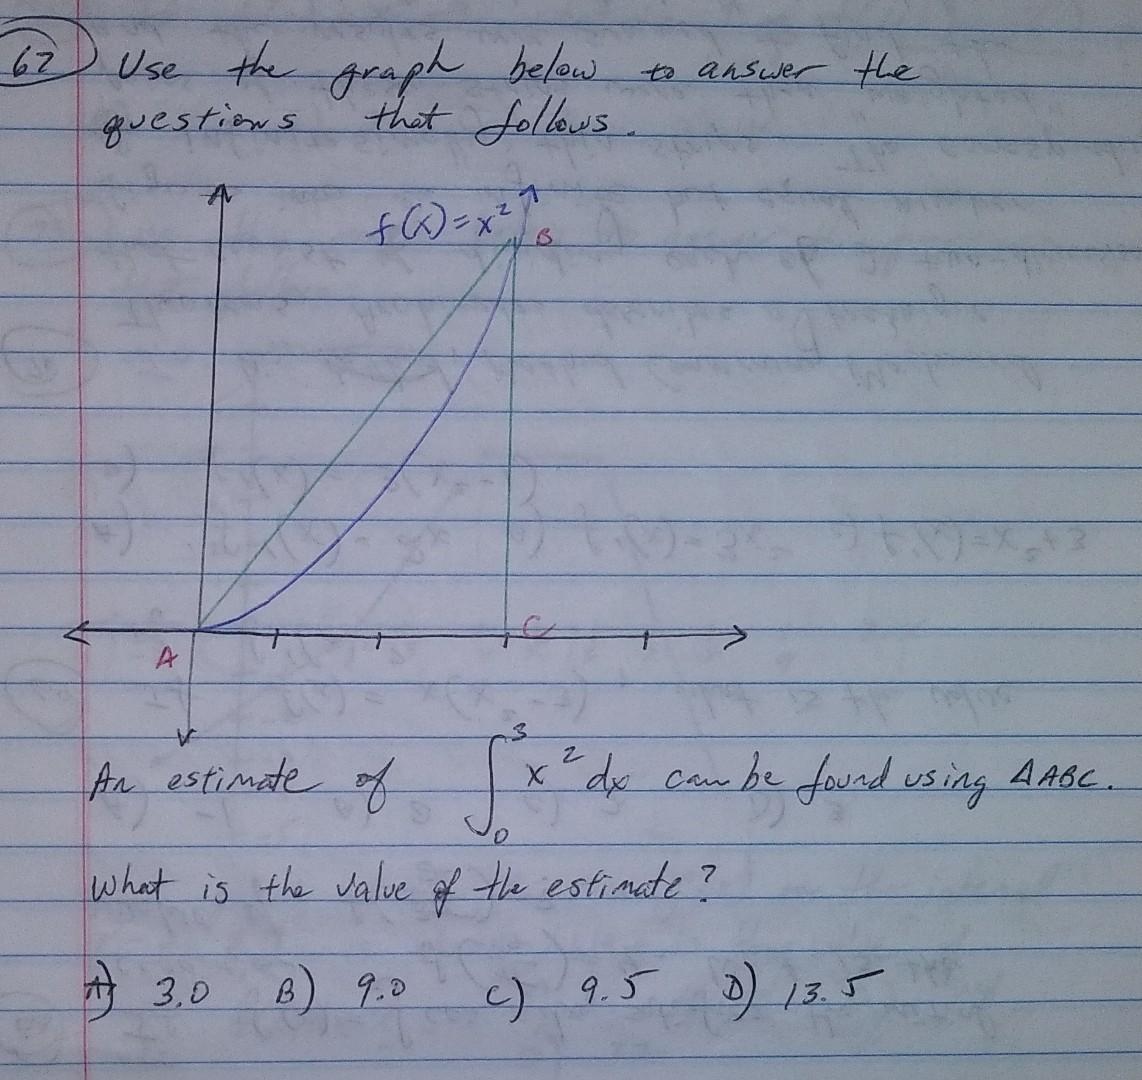 62) Use the graph below to answer the
questions that follows.
f(x)=x²
B
C
A
An estimate of ∫₀³ x² dx can be found using ΔABC.
What is the value of the estimate?
A) 3.0 B) 9.0 C) 9.5 D) 13.5